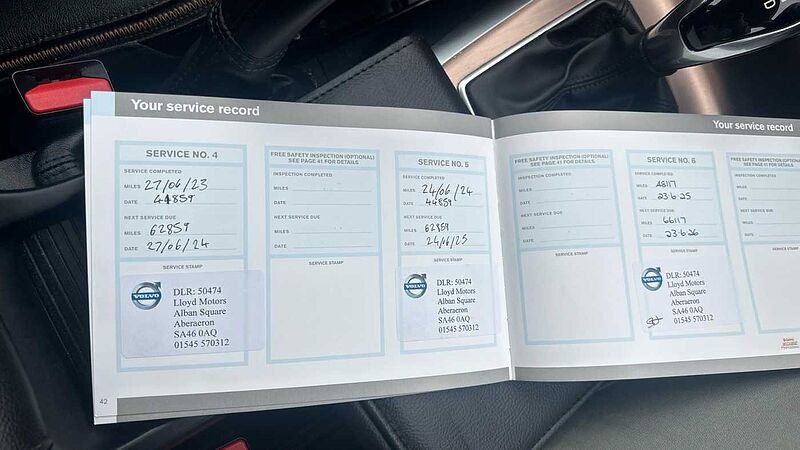 D
Your service record
SERVICE NO. 4
SERVICE COMPLETED
MILES 27/06/23
DATE 44859
NEXT SERVICE DUE
MILES 62859
DATE 27/06/24
SERVICE STAMP
VOLVO
DLR: 50474
Lloyd Motors
Alban Square
Aberaeron
SA46 0AQ
01545 570312
FREE SAFETY INSPECTION (OPTIONAL)
SEE PAGE 41 FOR DETAILS
INSPECTION COMPLETED
MILES
DATE
NEXT SERVICE DUE
MILES
DATE
SERVICE STAMP
SERVICE NO. 5
SERVICE COMPLETED
MILES 24/06/24
DATE 44859
NEXT SERVICE DUE
MILES 62859
DATE 24/06/25
SERVICE STAMP
VOLVO
DLR: 50474
Lloyd Motors
Alban Square
Aberaeron
SA46 0AQ
01545 570312
42
Your service record
FREE SAFETY INSPECTION (OPTIONAL)
SEE PAGE 41 FOR DETAILS
INSPECTION COMPLETED
MILES
DATE
NEXT SERVICE DUE
MILES
DATE
SERVICE STAMP
SERVICE NO. 6
SERVICE COMPLETED
MILES 48117
DATE 23.6.25
NEXT SERVICE DUE
MILES 66117
DATE 23.6.26
SERVICE STAMP
VOLVO
DLR: 50474
Lloyd Motors
Alban Square
Aberaeron
SA46 0AQ
01545 570312
FREE SAFETY INSPECTION
SEE PAGE 41 FOR
INSPECTION COMPLETED
MILES
DATE
NEXT SERVICE DUE
MILES
DATE
SERVICE